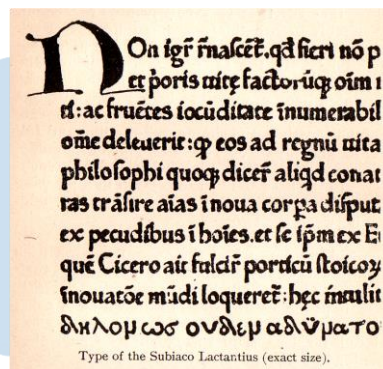 NOn igr̄ r̄nascet̄. qd̄ fieri nō p
et ꝑoris uitę factorūqꝫ oīm ı
ti: ac fruētes iocūditate īnumerabil
ome deleuerit: ꝙ eos ad regnū uita
philosophi quoqꝫ dicer̄ aliqd conat
ras trāsire aīas ī noua corpa disput
ex pecudibus ī hoīes. et se ip̄m ex E
quē Cicero ait fulcir̄ porticū stoicoꝝ
īnouatōe mūdi loqueret̄: hęc intulit
δηλομ ωσ ουδεμ αδὺματο
Type of the Subiaco Lactantius (exact size).